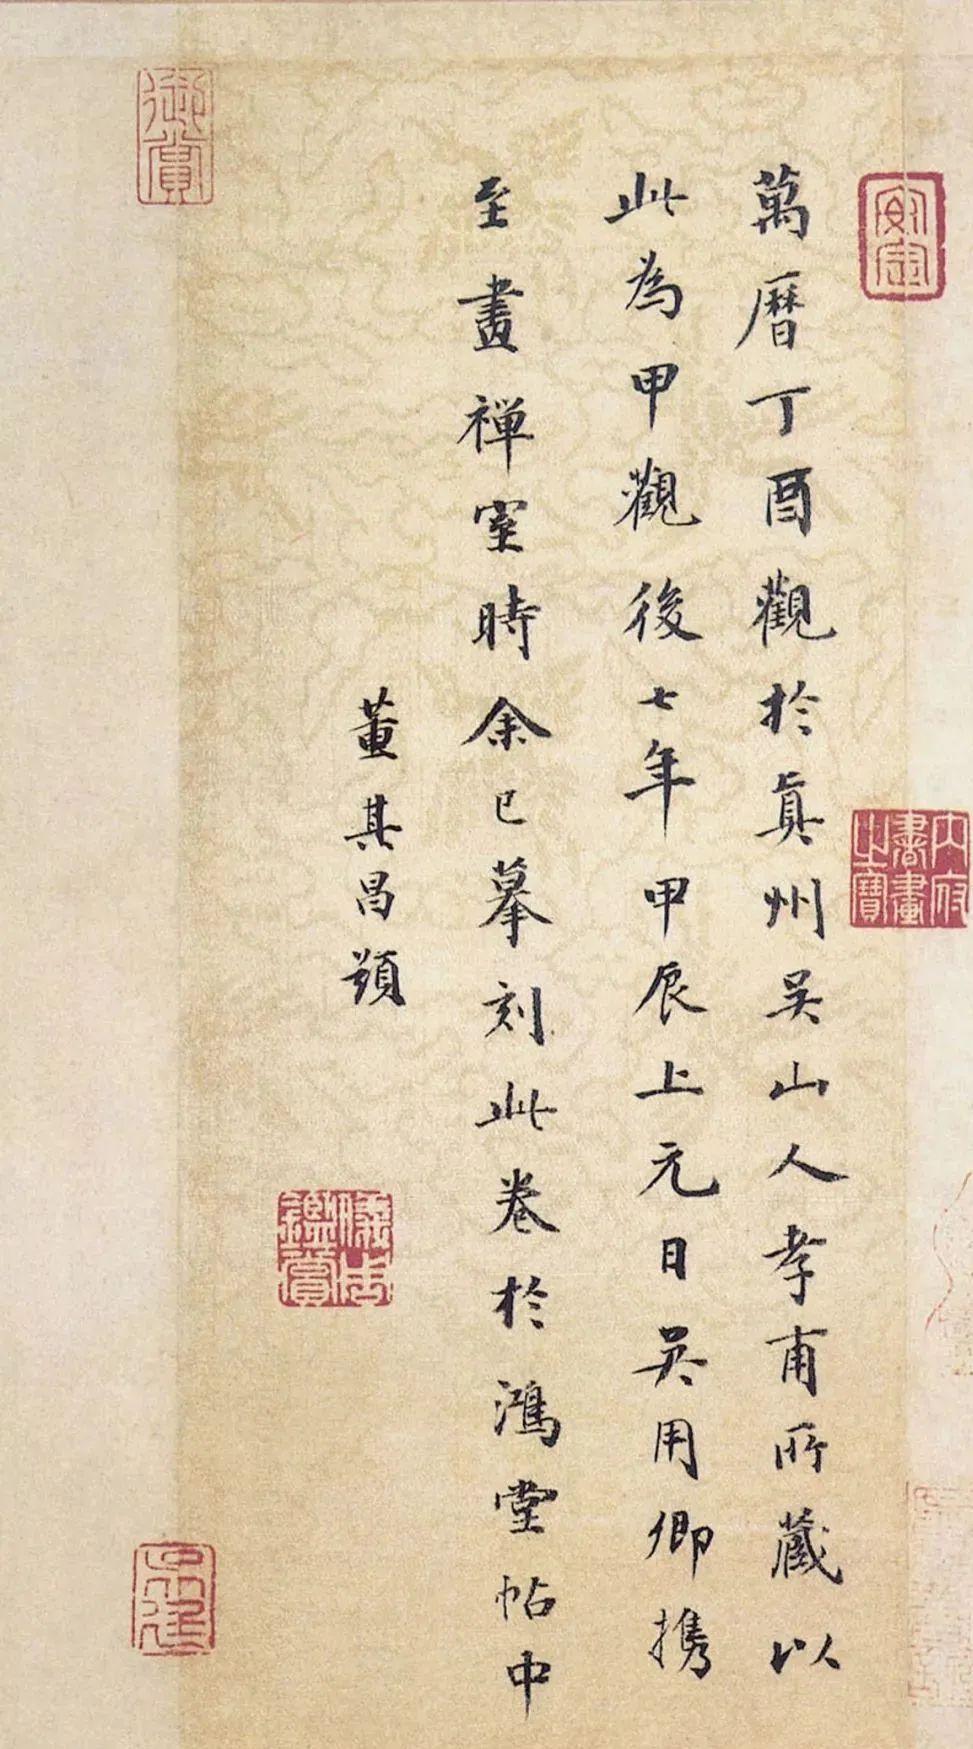 萬曆丁酉觀於真州吳山人孝甫所藏以
此為甲觀後七年甲辰上元日吳用卿攜
至畫禪室時余已摹刻此卷於鴻堂帖中
董其昌題
御賞
內府書畫之寶